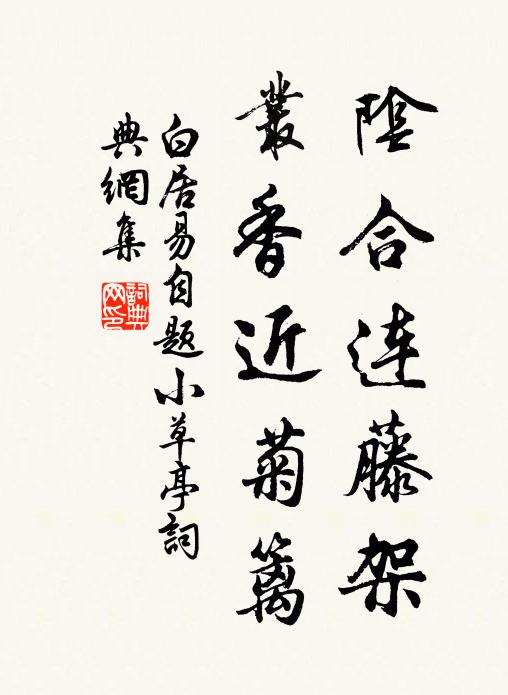 陰合連藤架
叢香近菊籬
白居易自題小草亭詞
典網集
詞典网印